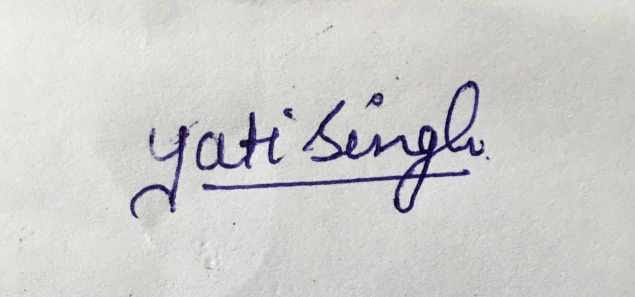 Yati Singh.